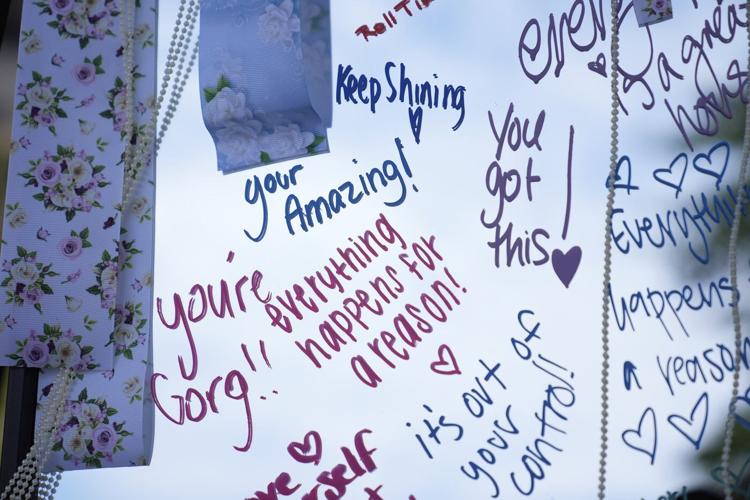 Roll
Keep Shining
your
Amazing!
you're
Gorg!!
everything
happens for
a reason!
You
got
this!
it's out of
your
control!!
every
is a great
Everything
happens
a reason